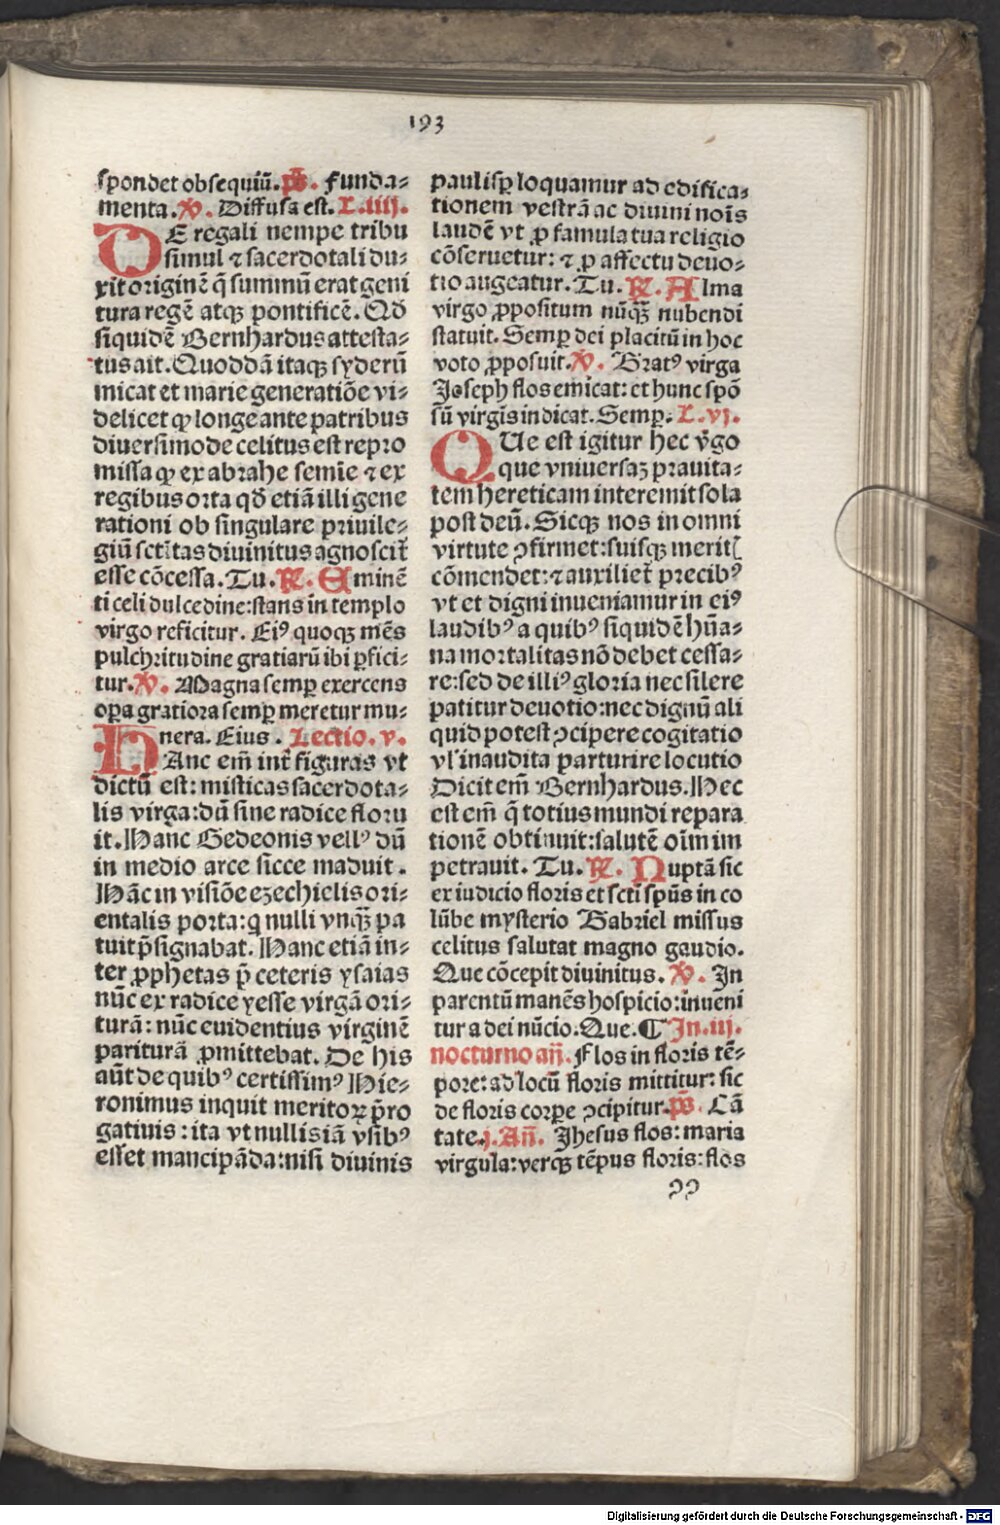 193
spondet obsequiū. p̄s. Funda⸗
menta. ℣. Diffusa est. L. iiij.
DE regali nempe tribu
simul ⁊ sacerdotali du⸗
xit originē q̄ summū erat geni
tura regē atqꝫ pontificē. Qd̄
siquidē Bernhardus attesta⸗
tus ait. Quoddā itaqꝫ syderū
micat et marie generatiōe vi⸗
delicet ꝙ longe ante patribus
diuersimode celitus est repro
missa ꝙ ex abrahe semīe ⁊ ex
regibus orta qd̄ etiā illi gene
rationi ob singulare priuile⸗
giū sctītas diuinitus agnoscit᷑
esse cōcessa. Tu. ℟. Eminē
ti celi dulcedine: stans in templo
virgo reficitur. Eiꝰ quoqꝫ mēs
pulchritudine gratiarū ibi ꝑfici⸗
tur. ℣. Magna semꝑ exercens
oꝑa gratiora semꝑ meretur mu⸗
nera. Eius. Lectio. v.
HAnc em̄ int᷑ figuras vt
dictū est: misticas sacerdota⸗
lis virga: dū sine radice floru
it. Hanc Gedeonis vellꝰ dū
in medio arce sicce maduit.
Hāc in visiōe ezechielis ori⸗
entalis porta: q̄ nulli vnqꝫ pa
tuit p̄signabat. Hanc etiā in⸗
ter ꝓphetas p̄ ceteris ysaias
nūc ex radice yesse virgā ori⸗
turā: nūc euidentius virginē
pariturā ꝓmittebat. De his
aūt de quibꝰ certissimꝰ Hie⸗
ronimus inquit meritoꝝ p̄ro
gatiuis: ita vt nullis iā vsibꝰ
esset mancipāda: nisi diuinis
paulisꝑ loquamur ad edifica⸗
tionem vestrā ac diuini noīs
laudē vt ꝓ famula tua religio
cōseruetur: ⁊ ꝓ affectu deuo⸗
tio augeatur. Tu. ℟. Alma
virgo ꝓpositum nūqꝫ nubendi
statuit. Semꝑ dei placitū in hoc
voto ꝓposuit. ℣. Gratꝰ virga
Joseph flos emicat: et hunc spō
sū virgīs indicat. Semꝑ. L. vj.
QUe est igitur hec v̄go
que vniuersaꝫ prauita⸗
tem hereticam interemit sola
post deū. Sicqꝫ nos in omni
virtute ꝯfirmet: suisqꝫ meritꝭ
cōmendet: ⁊ auxiliet᷑ precibꝰ
vt et digni inueniamur in eiꝰ
laudibꝰ a quibꝰ siquidē hūa⸗
na mortalitas nō debet cessa⸗
re: sed de illiꝰ gloria nec silere
patitur deuotio: nec dignū ali
quid potest ꝯcipere cogitatio
vl' inaudita parturire locutio
Dicit em̄ Bernhardus. Hec
est em̄ q̄ totius mundi repara
tionē obtinuit: salutē oīm im
petrauit. Tu. ℟. Nuptā sic
ex iudicio floris et sctī spūs in co
lūbe mysterio Gabriel missus
celitus salutat magno gaudio.
Que cōcepit diuinitus. ℣. In
parentū manēs hospicio: inueni
tur a dei nūcio. Que. ¶ In. iij.
nocturno añ. Flos in floris tē⸗
pore: ad locū floris mittitur: sic
de floris corꝑe ꝯcipitur. p̄s. Cā
tate. j. Añ. Jhesus flos: maria
virgula: verqꝫ tēpus floris: flos
ꝯꝯ
Digitalisierung gefördert durch die Deutsche Forschungsgemeinschaft - DFG